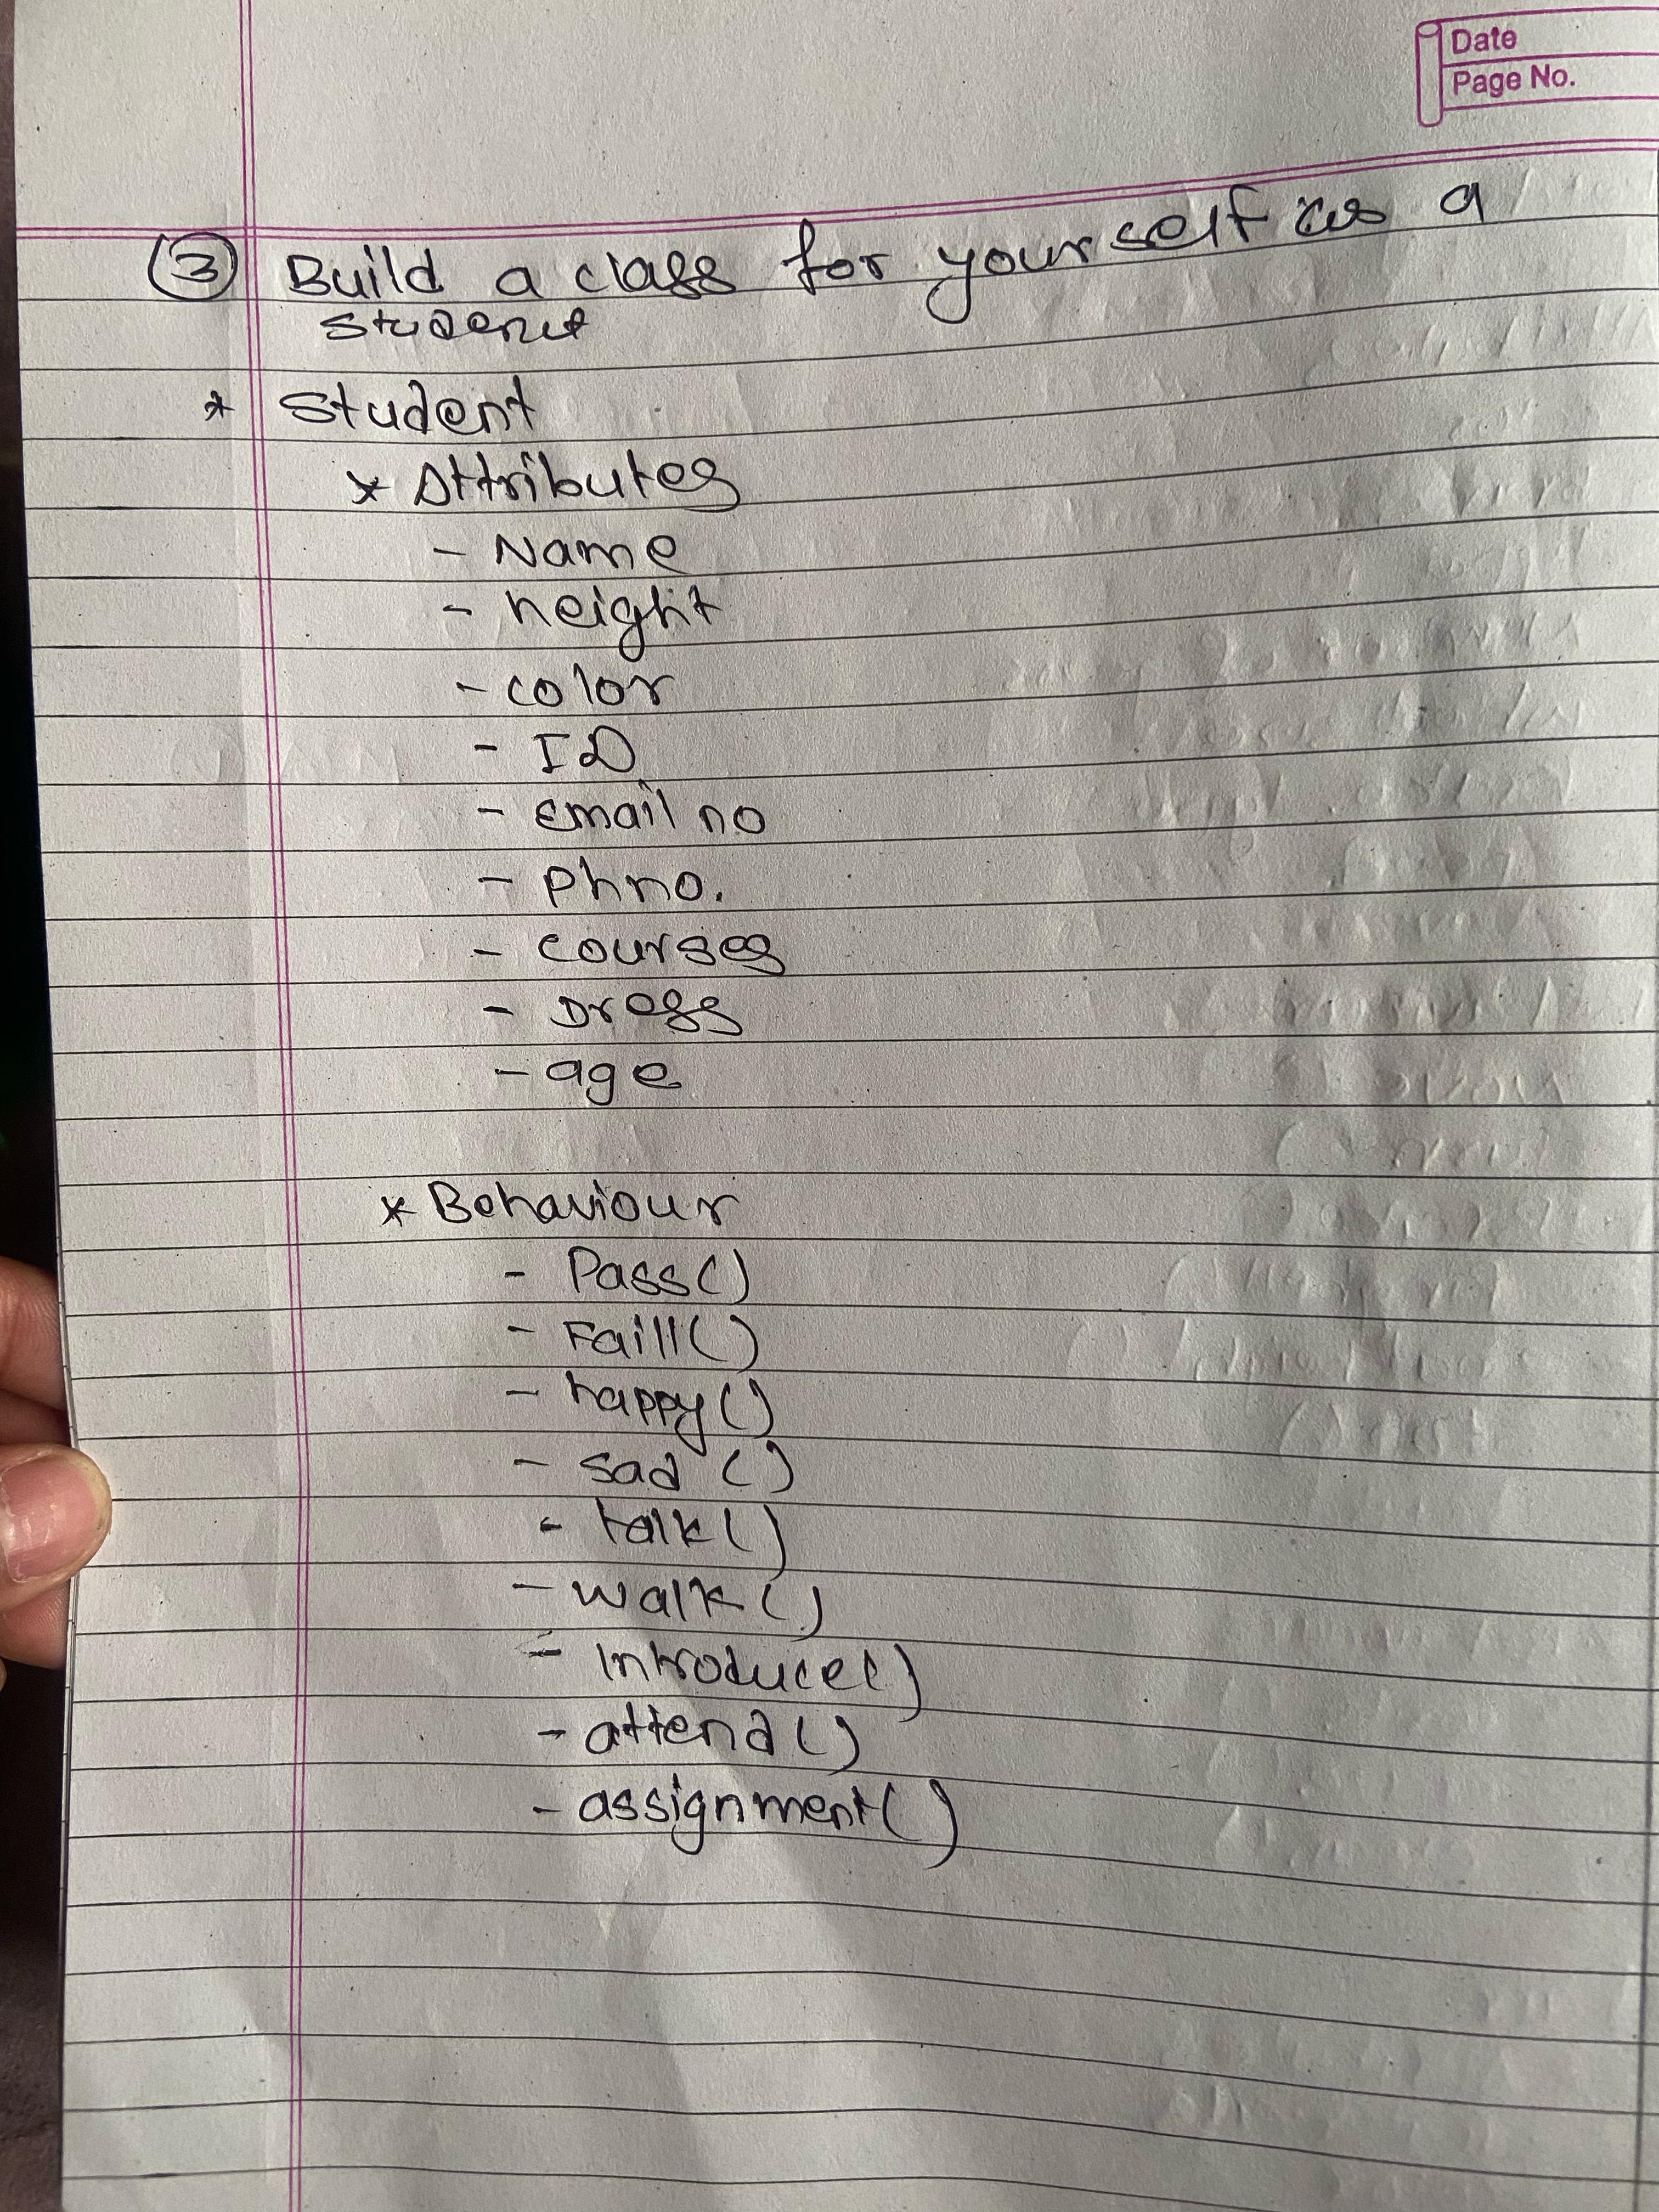 Date
Page No.
③ Build a class for yourself as a
student
* Student
* Attributes
- Name
- height
- color
- ID
- Email no
- Phno.
- courses
- Dress
- age
* Behaviour
- Pass()
- Faill()
- happy()
- sad ()
- talk()
- walk()
- Introduce()
- attend()
- assignment()